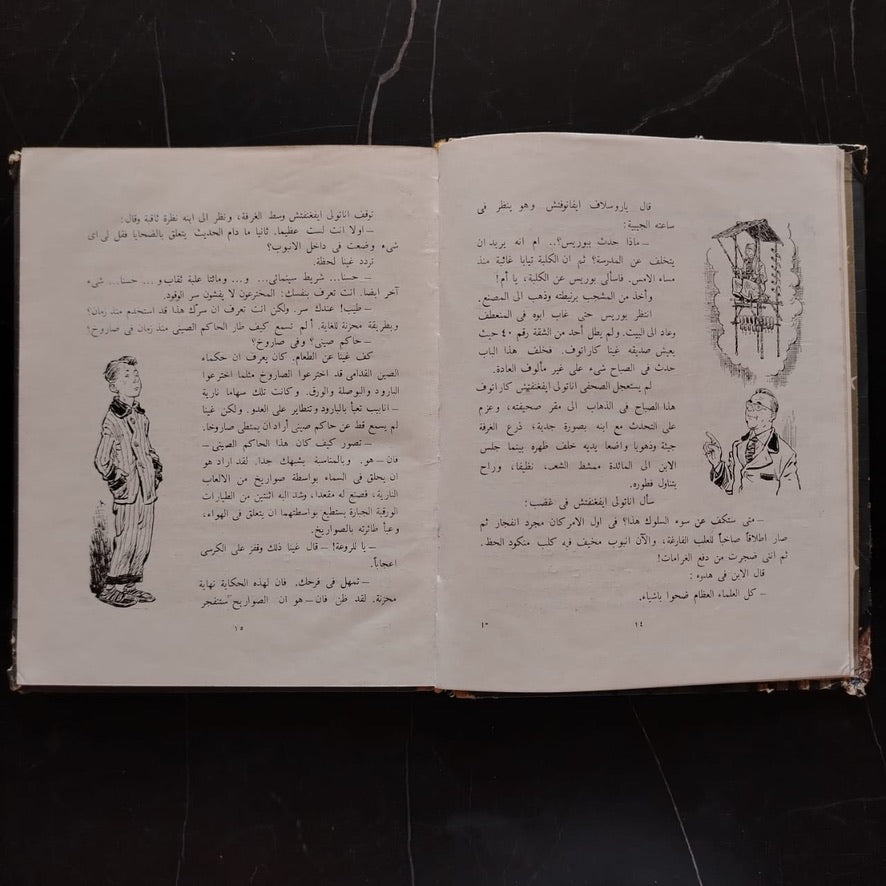 قال ياروسلاف ايفانوفتش وهو ينظر فى
ساعته الجيبية:
ــ ماذا حدث ببوريس؟.. ام انه يريد ان
يتخلف عن المدرسة؟ ثم ان الكلبة تيابا غائبة منذ
مساء الامس. فاسألى بوريس عن الكلبة، يا أم!
وأخذ من المشجب برنيطته وذهب الى المصنع.
انتظر بوريس حتى غاب ابوه فى المنعطف
وعاد الى البيت. ولم يطل أحد من الشقة رقم ٤٠ حيث
يعيش صديقه غينا كاراتوف. فخلف هذا الباب
حدث فى الصباح شىء على غير مألوف العادة.
لم يستعجل الصحفى اناتولى ايفغنفتش كاراتوف
هذا الصباح فى الذهاب الى مقر صحيفته، وعزم
على التحدث مع ابنه بصورة جدية؛ ذرع الغرفة
جيئة وذهوبا واضعا يديه خلف ظهره بينما جلس
الابن الى المائدة ممشط الشعر، نظيفا، وراح
يتناول فطوره.
سأل اناتولى ايفغنفتش فى غضب:
ــ متى ستكف عن سوء السلوك هذا؟ فى اول الامر كان مجرد انفجار ثم
صار اطلاقاً صاخباً للعلب الفارغة، والآن انبوب مخيف فيه كلب منكود الحظ.
ثم اننى ضجرت من دفع الغرامات!
قال الابن فى هدوء:
ــ كل العلماء العظام ضحوا باشياء.
١٤
توقف اناتولى ايفغنفتش وسط الغرفة، ونظر الى ابنه نظرة ثاقبة وقال:
ــ اولا انت لست عظيما. ثانيا ما دام الحديث يتعلق بالضحايا فقل لى اى
شىء وضعت فى داخل الانبوب؟
تردد غينا لحظة.
ــ حسنا... شريط سينمائى... و... ومائتا علبة ثقاب و... حسنا... شىء
آخر ايضا. انت تعرف بنفسك: المخترعون لا يفشون سر الوقود.
ــ طيب! عندك سر. ولكن انت تعرف ان سرّك هذا قد استخدم منذ زمان؟
وبطريقة محزنة للغاية. أ لم تسمع كيف طار الحاكم الصينى منذ زمان فى صاروخ؟
ــ حاكم صينى؟ وفى صاروخ؟
كف غينا عن الطعام. كان يعرف ان حكماء
الصين القدامى قد اخترعوا الصاروخ مثلما اخترعوا
البارود والبوصلة والورق. وكانت تلك سهاما نارية
ــ انابيب تعبأ بالبارود وتتطاير على العدو. ولكن غينا
لم يسمع قط عن حاكم صينى أراد ان يمتطى صاروخا.
ــ تصور كيف كان هذا الحاكم الصينى ــ
فان ــ هو. وبالمناسبة يشبهك جدا. لقد اراد هو
ان يحلق فى السماء بواسطة صواريخ من الالعاب
النارية، فصنع له مقعدا، وشد اليه اثنتين من الطيارات
الورقية الجبارة يستطيع بواسطتهما ان يتعلق فى الهواء،
وعبأ طائرته بالصواريخ.
ــ يا للروعة! ــ قال غينا ذلك وقفز على الكرسى
اعجاباً.
ــ تمهل فى فرحك. فان لهذه الحكاية نهاية
محزنة. لقد ظن فان ــ هو ان الصواريخ ستنفجر
١٥